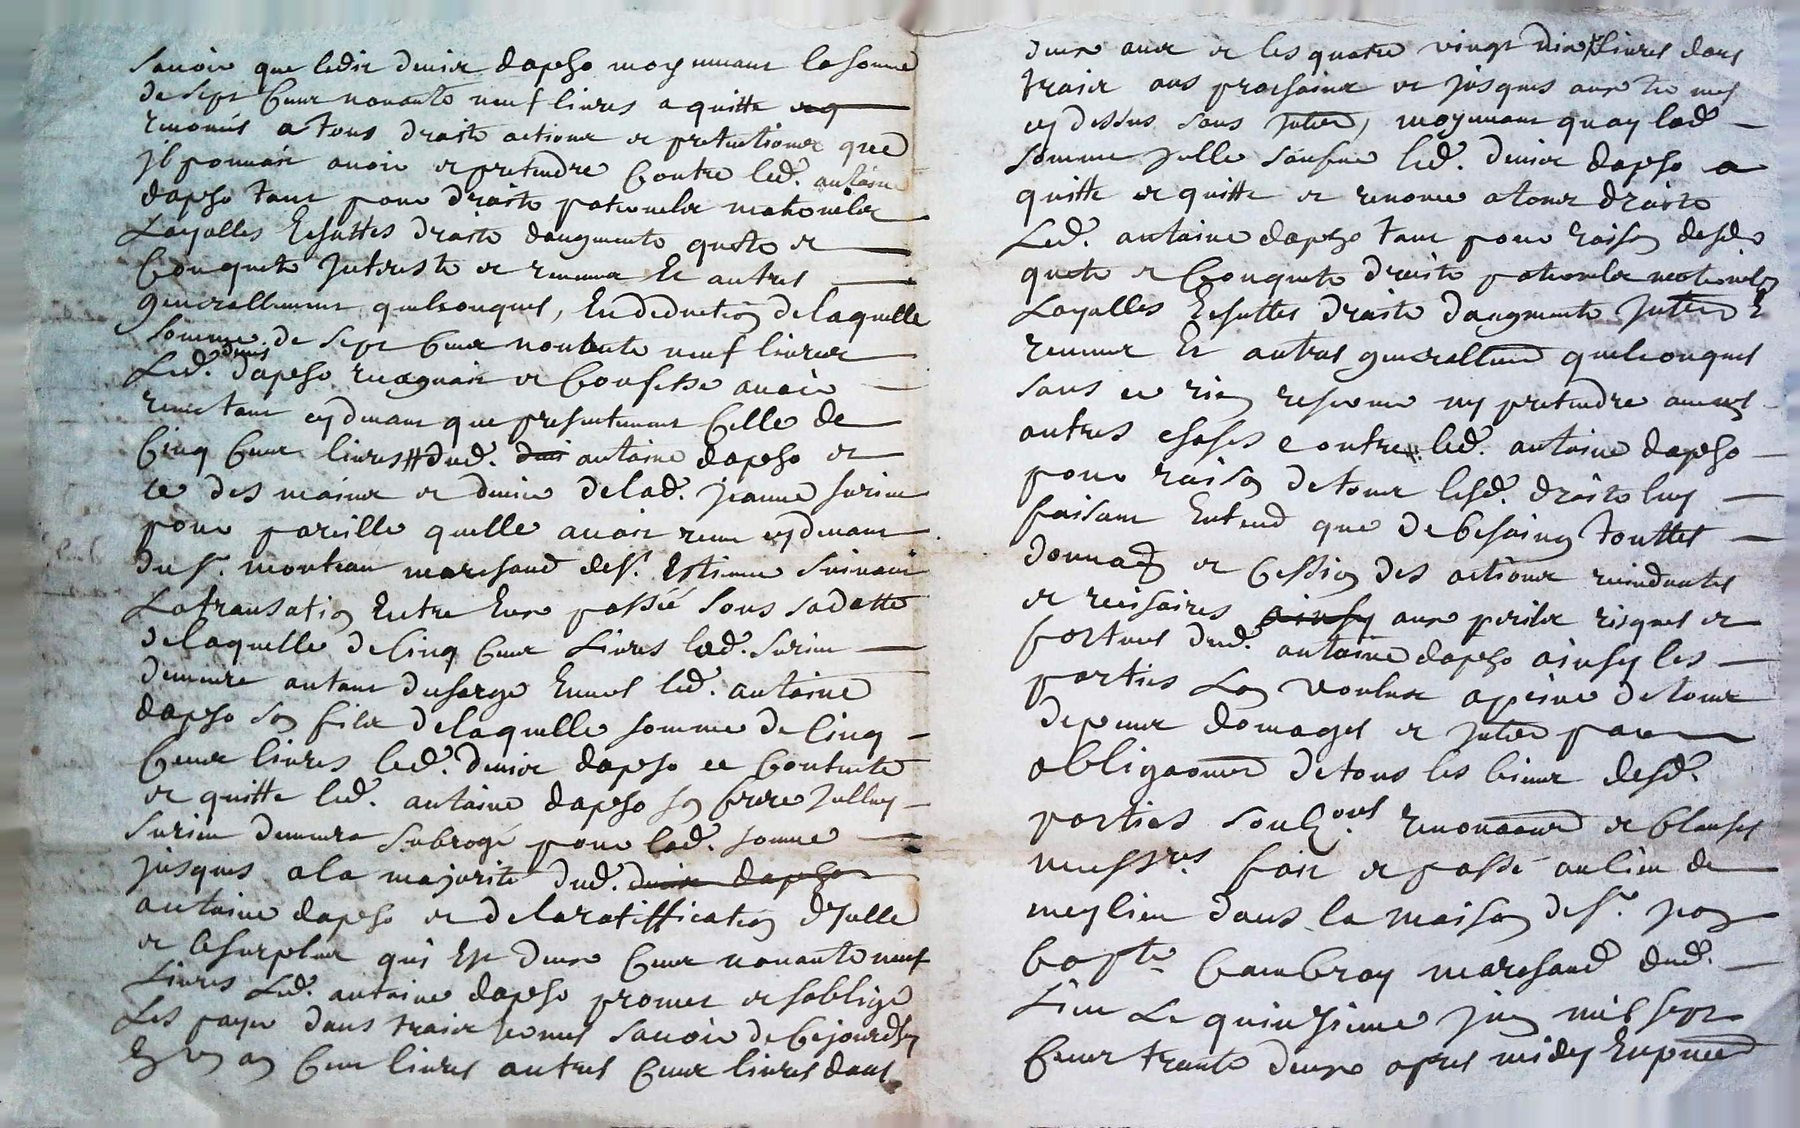 Savoir que ledit denis dapcho moyennant la somme
de sept cents nonante neuf livres a quitté
renoncés a tous droits actions et pretentions que
jl pouvoit avoir et pretendre contre led. antoine
dapcho tant pour droits paternels maternels
Layalles Eschuttes droits daugments quote et
Conquets Juterests et revenus Et autres
generallement quelconques, En deduction de laquelle
somme de sept cens nonante neuf livres
Led. denis dapcho recognoit et confesse avoir
receu tant cydevant que presentement celle de
Cinq cens livres dud. antoine dapcho et
ce des mains et denier de lad. jeanne surieu
pour pareille quelle avoit receu cydevant
du sr. montean marchand de st. Estienne suivant
La transation Entre Eux passée sous sa datte
de laquelle de Cinq cens Livres lad. Surieu
demeure autant descharge Envers led. antoine
dapcho son fils de laquelle somme de Cinq
Cens livres led. denis dapcho ce contente
et quitte led. antoine dapcho son frere
Surieu demeure subrogé pour lad. somme
jusques a la majorité dud. denis dapcho
antoine dapcho et de la ratiffication dJcelle
et le surplus qui Est deux Cens nonante neuf
Livres Led. antoine dapcho promet et soblige
Les payer dans trois termes savoir de ce jourdhuy
En un an Cens livres autres Cens livres dans
deux ans et les quatre vingt dix livres dans
trois ans prochains et jusques aux termes
cy dessus sans Juter, moyennant quoy lad.
somme Jcelle led. denis dapcho a
quitté et quitte et renonce a tous droits
Led. antoine dapcho tant pour raison desd.
quote et Conquets droits paternels maternels
Layalles Eschuttes droits daugments Juter E
revenus Et autres generallemt quelconques
sans ce rien reserver ny pretendre aucunes
autres choses contre led. antoine dapcho
pour raison de tous lesd. droits luy
faisant Entend que de besoing touttes
donnaon et Cession des actions
et recisoires ainsy aux perils risques et
fortunes dud. antoine dapcho ainsy les
parties Lon voulues a peine de tous
depens domages et Juter par
obligaons de tous les biens desd.
parties renonaons et clauses
necessres. fait et passé au lieu de
meylieu dans la maison de sr. jean
bapte. Cambray marchand dud.
Lieu Le quinzieme juin mil sept
Cens trente deux apres midy En pnce